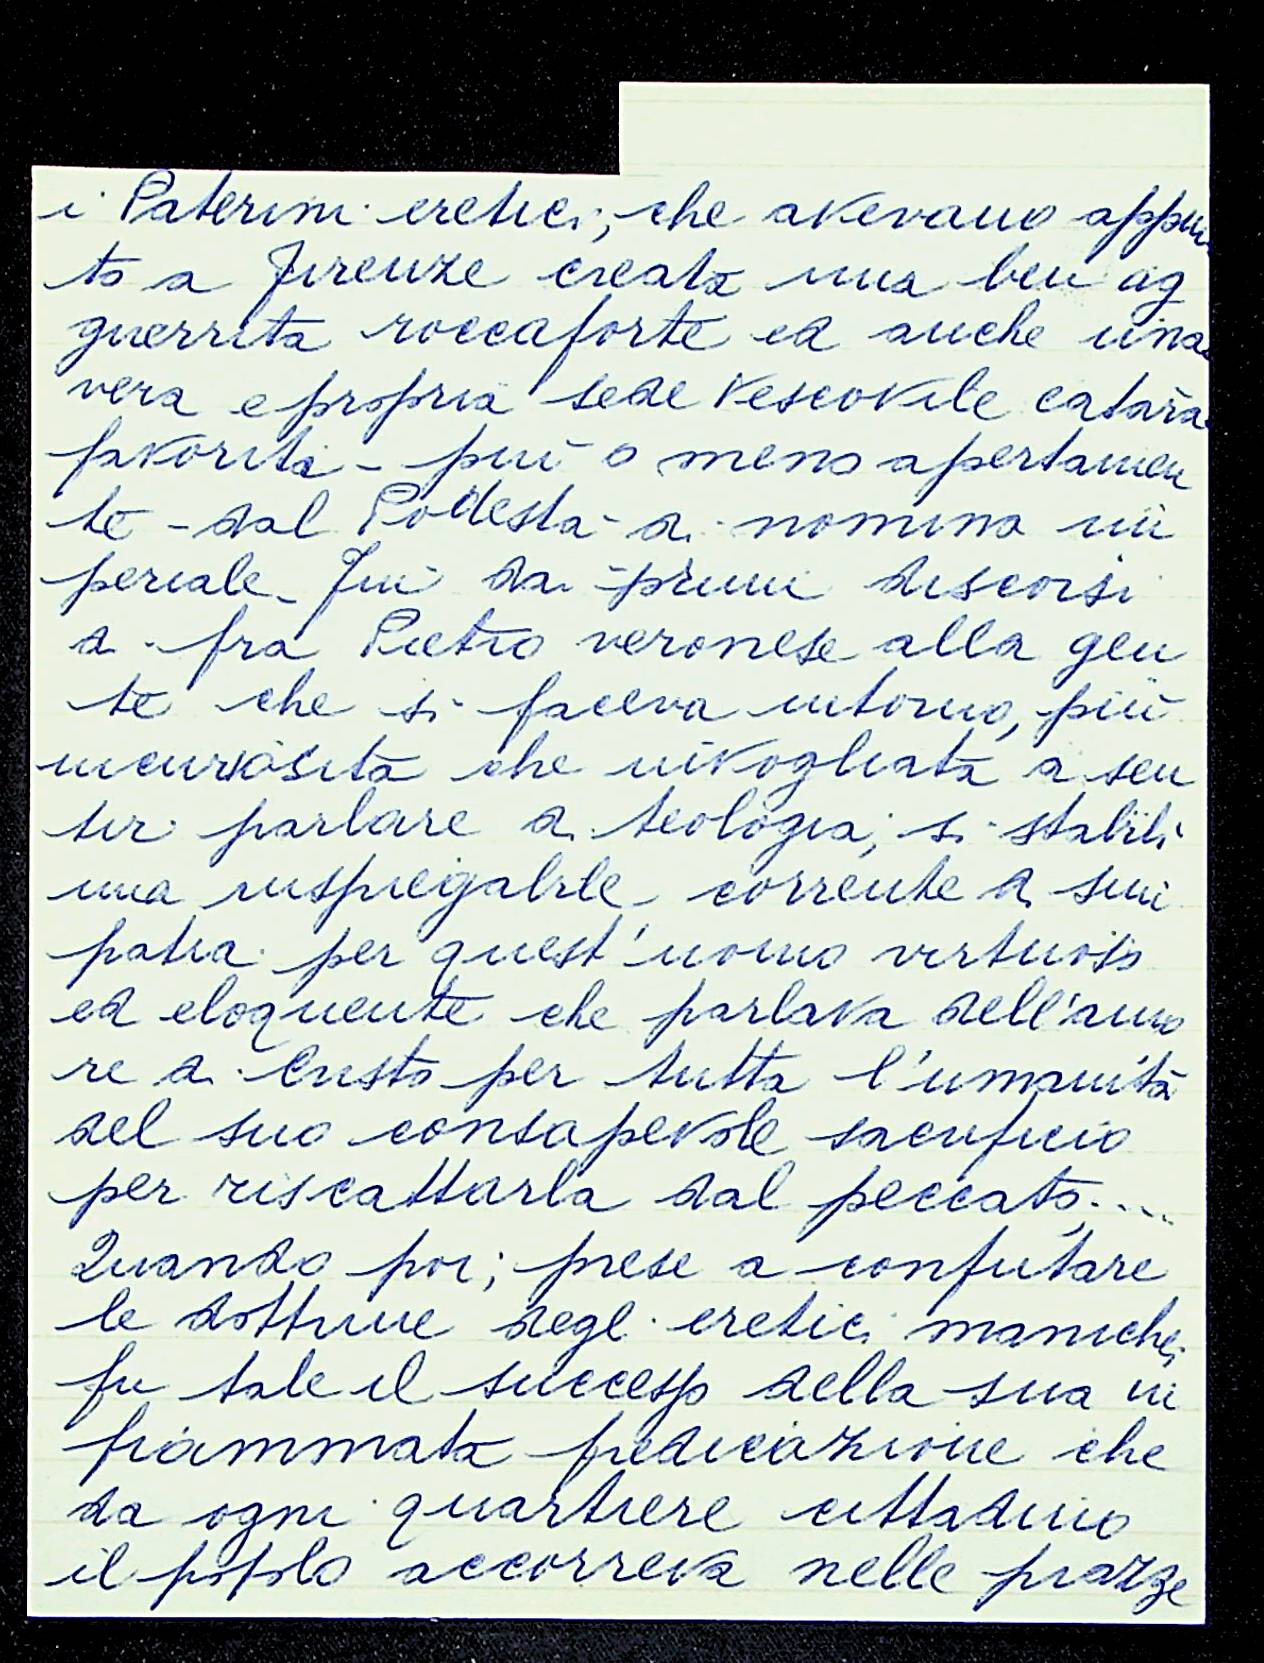 i Paterini eretici, che avevano appun
to a Firenze creata una ben ag
guerrita roccaforte ed anche una
vera e propria sede vescovile catara
favorita - più o meno apertamen
te - dal Podestà di nomina im
periale. Fin dai primi discorsi
di fra Pietro veronese alla gen
te che si faceva intorno, più
incuriosita che invogliata a sen
tir parlare di teologia, si stabilì
una inspiegabile corrente di sim
patia per quest'uomo virtuoso
ed eloquente che parlava dell'amo
re di Cristo per tutta l'umanità
del suo consapevole sacrificio
per riscattarla dal peccato....
Quando poi, prese a confutare
le dottrine degli eretici manichei
fu tale il successo della sua in
fiammata predicazione che
da ogni quartiere cittadino
il popolo accorreva nelle piazze